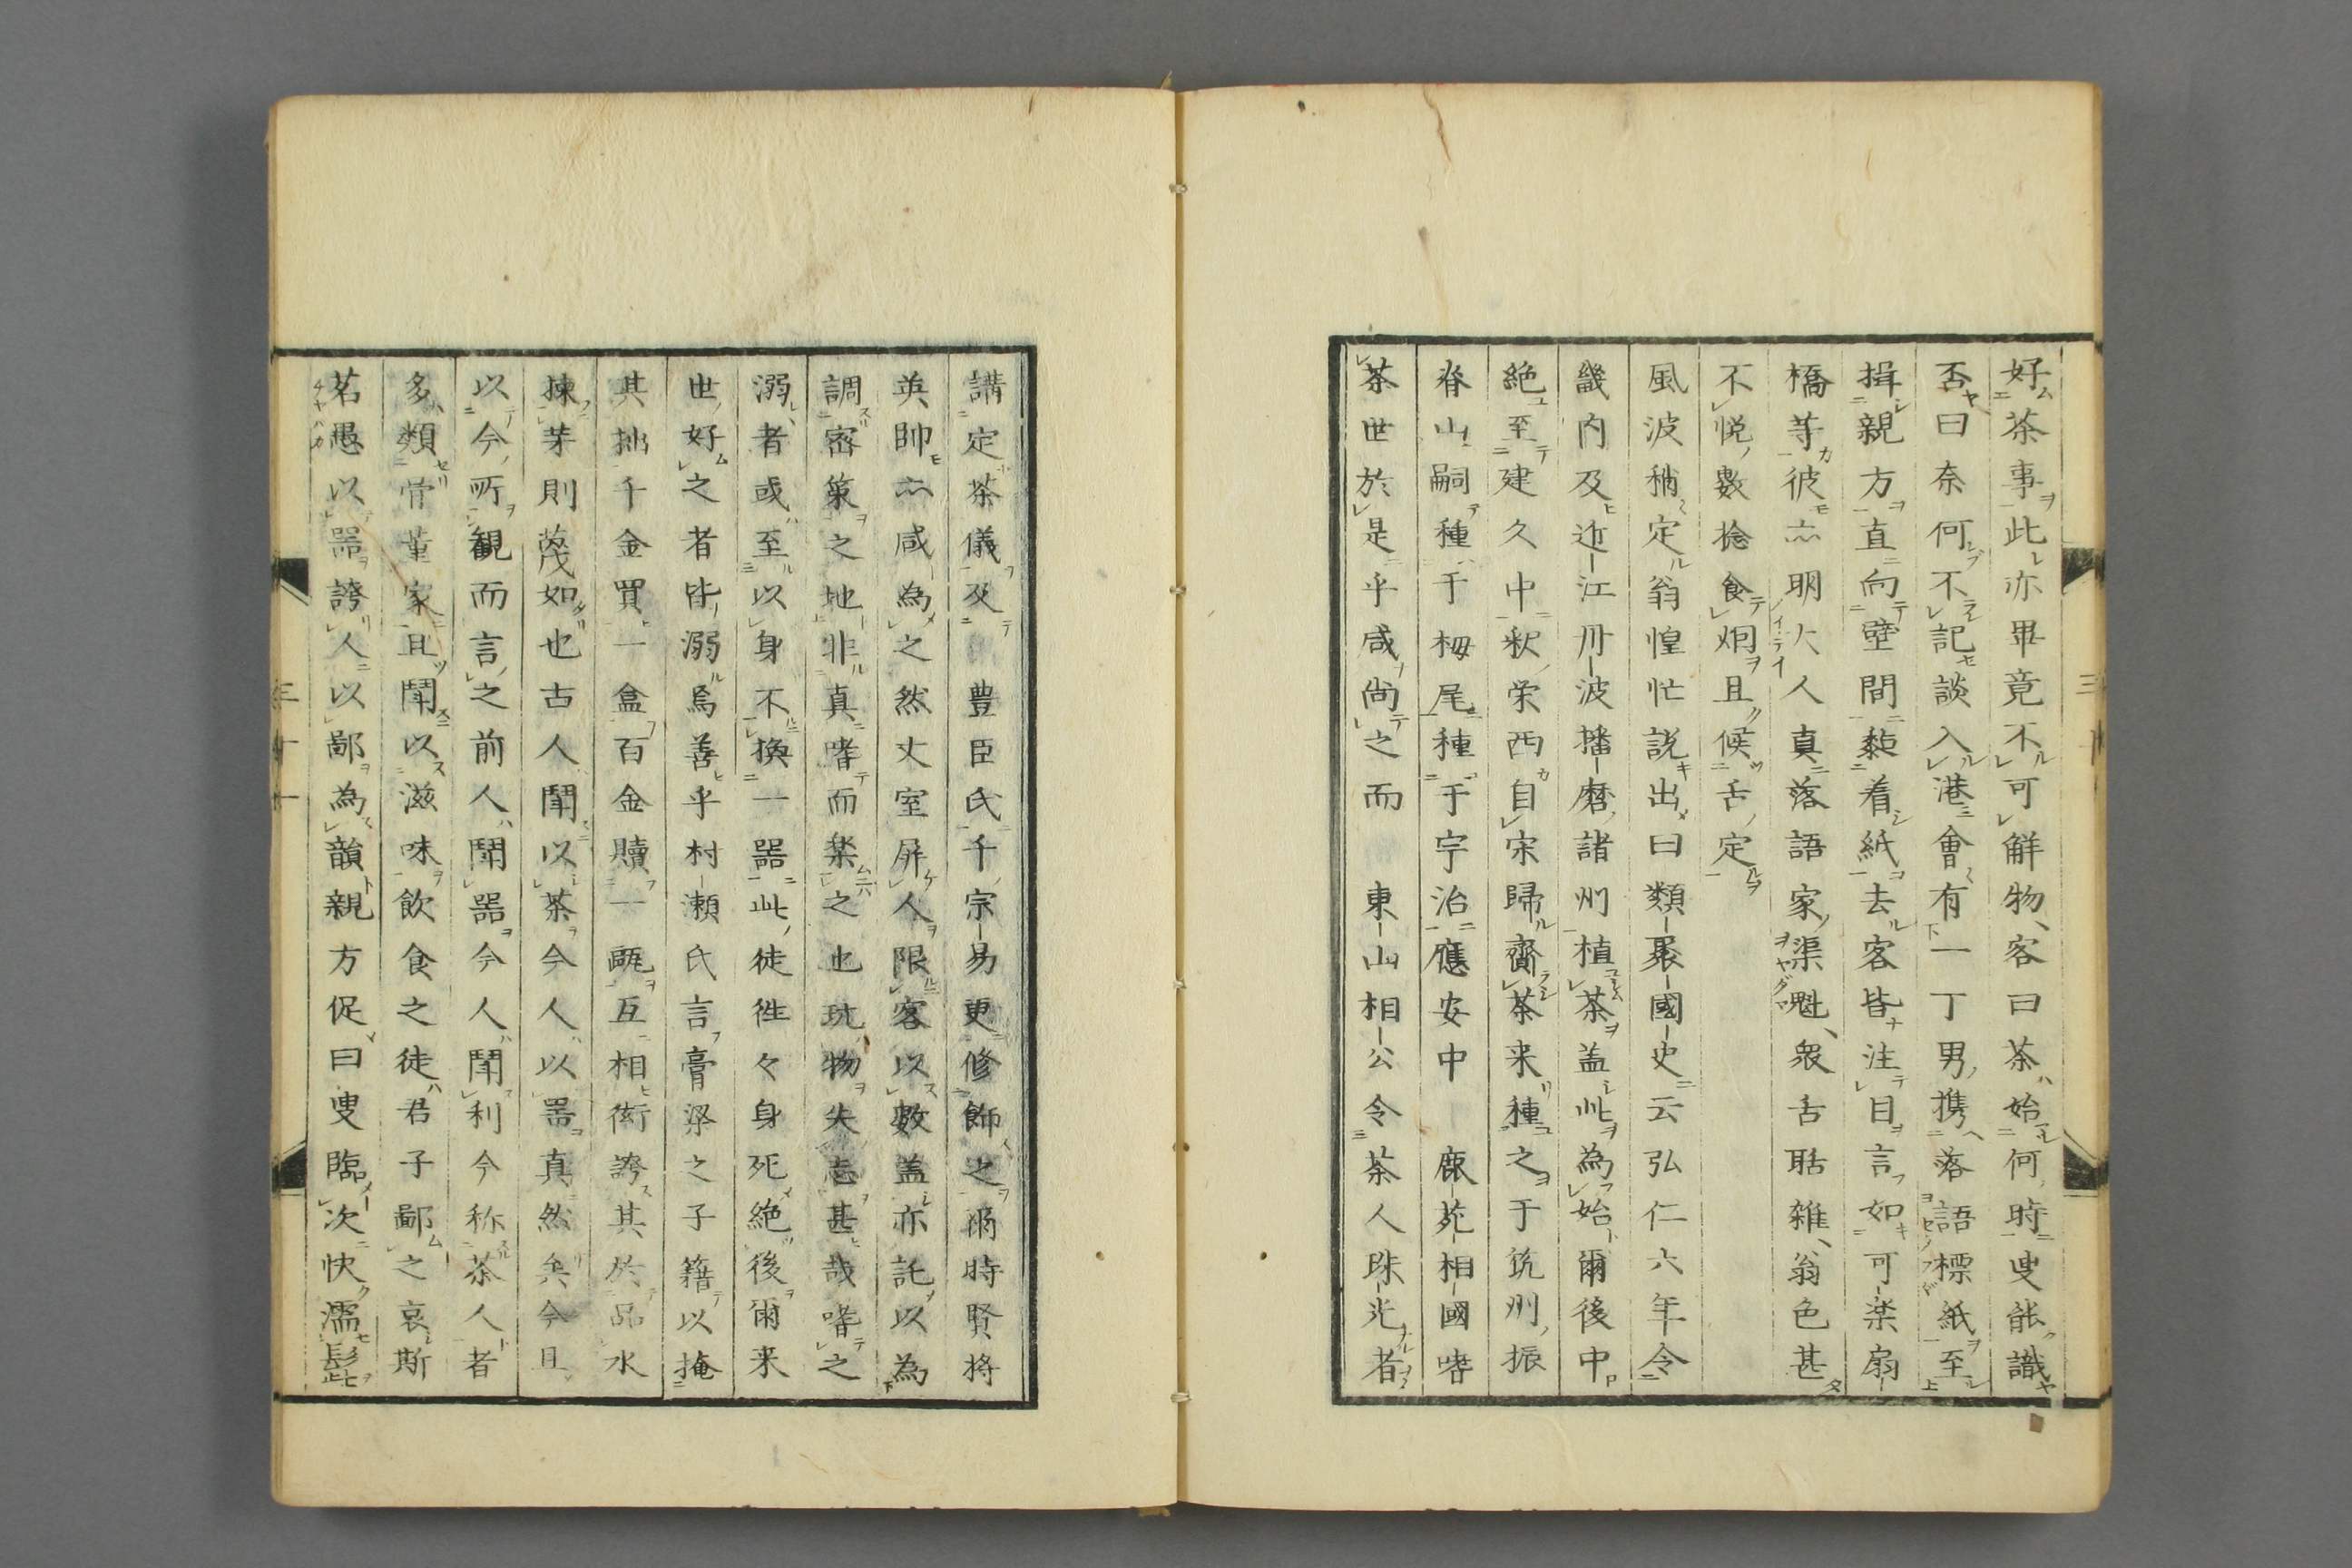 好茶事此亦畢竟不可解物、客曰茶始何時叟能識
否曰奈何不記談入港會有一丁男携落語標紙至
揖親方直向壁間黏着紙去客皆注目言如可楽扇
橋等彼亦明大人真落語家渠魁、衆舌聒雜、翁色甚
不悦數捻食烟且候舌定
風波稍定翁惶忙説出曰類聚國史云弘仁六年令
畿内及近江丹波播磨諸州植茶盖此為始爾後中
絶至建久中釈栄西自宋歸齎茶来種之于筑州振
脊山嗣種于栂尾種于宇治應安中　鹿苑相國嗜
茶世於是乎咸尚之而　東山相公令茶人珠光者
講定茶儀及　豊臣氏千宗易更修飾之爾時賢将
英帥亦咸為之然丈室屏人限客以數盖亦託以為
調密策之地非真嗜而楽之也玩物失志甚哉嗜之
溺者或至以身不換一器此徒徃々身死絶後爾来
世好之者皆溺焉善乎村瀬氏言膏粱之子籍以掩
其拙千金買一盒百金贖一甌互相衒誇其於品水
揀芽則蔑如也古人鬪以茶今人以器真然矣今且
以今所観而言之前人鬪器今人鬪利今称茶人者
多類骨董家且鬪以滋味飲食之徒君子鄙之哀斯
茗愚以器誇人以鄙為韻親方促曰叟臨次快濡髭
三十一